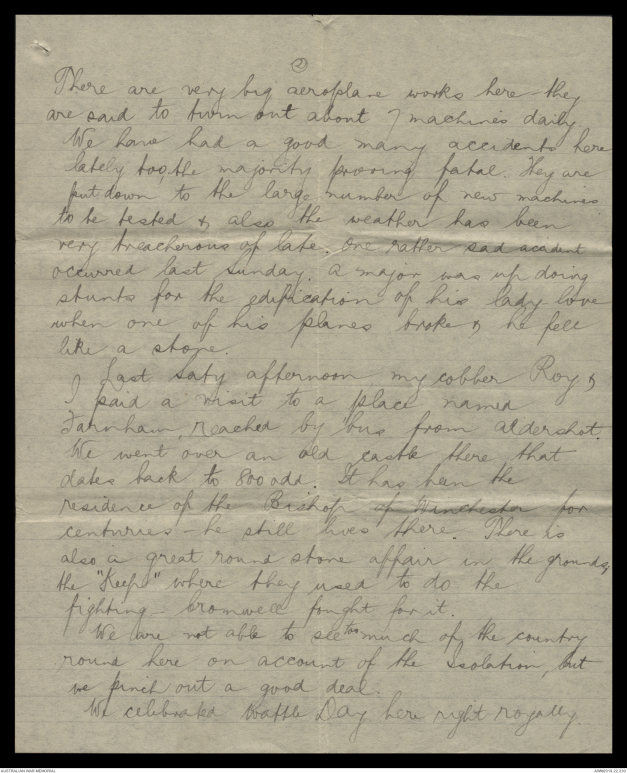 ②
There are very big aeroplane works here - they
are said to turn out about 7 machines daily.
We have had a good many accidents here
lately too, the majority proving fatal. They are
put down to the large number of new machines
to be tested & also the weather has been
very treacherous of late. One rather sad accident
occurred last Sunday. A major was up doing
stunts for the edification of his lady love
when one of his planes broke & he fell
like a stone.
Last Saty afternoon my cobber Roy &
I paid a visit to a place named
Farnham, reached by bus from Aldershot.
We went over an old castle there that
dates back to 800 odd. It has been the
residence of the Bishop of Winchester for
centuries - he still lives there. There is
also a great round stone affair in the grounds,
the "Keep" where they used to do the
fighting - Cromwell fought for it.
We are not able to see too much of the country
round here on account of the Isolation, but
we pinch out a good deal.
We celebrated Wattle Day here right royally.
AUSTRALIAN WAR MEMORIAL